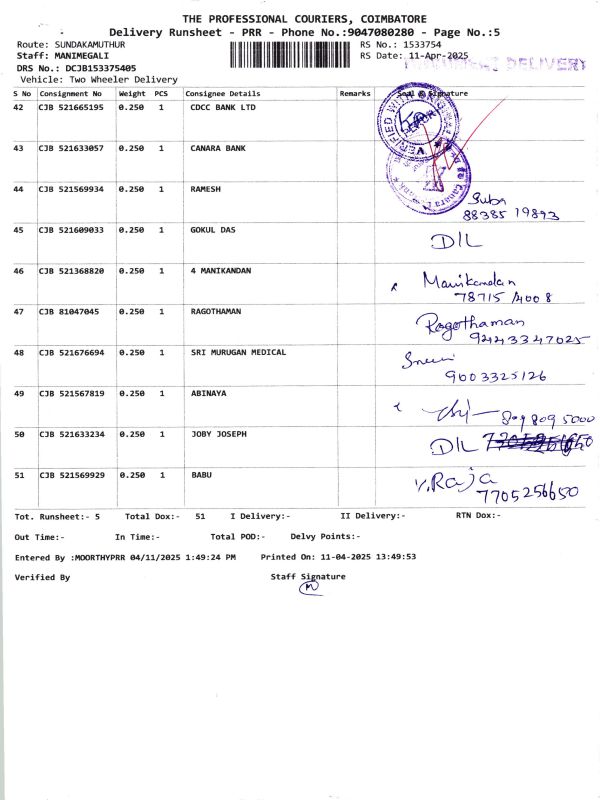 THE PROFESSIONAL COURIERS, COIMBATORE
Delivery Runsheet - PRR - Phone No.:9047080280 - Page No.:5
Route: SUNDAKAMUTHUR RS No.: 1533754
Staff: MANIMEGALI RS Date: 11-Apr-2025
DRS No.: DCJB153375405 DELIVERY
Vehicle: Two Wheeler Delivery
S No Consignment No Weight PCS Consignee Details Remarks Seal & Signature
42 CJB 521665195 0.250 1 CDCC BANK LTD
43 CJB 521633057 0.250 1 CANARA BANK
44 CJB 521569934 0.250 1 RAMESH
Suba
88385 19893
45 CJB 521609033 0.250 1 GOKUL DAS
D/L
46 CJB 521368820 0.250 1 4 MANIKANDAN
Manikandan
78715 14008
47 CJB 81047045 0.250 1 RAGOTHAMAN
Ragothaman
92443347025
48 CJB 521676694 0.250 1 SRI MURUGAN MEDICAL
9003325126
49 CJB 521567819 0.250 1 ABINAYA
809 809 5000
50 CJB 521633234 0.250 1 JOBY JOSEPH
D/L
51 CJB 521569929 0.250 1 BABU
V.Raja
7705256650
Tot. Runsheet:- 5 Total Dox:- 51 I Delivery:- II Delivery:- RTN Dox:-
Out Time:- In Time:- Total POD:- Delvy Points:-
Entered By :MOORTHYPRR 04/11/2025 1:49:24 PM Printed On: 11-04-2025 13:49:53
Verified By Staff Signature